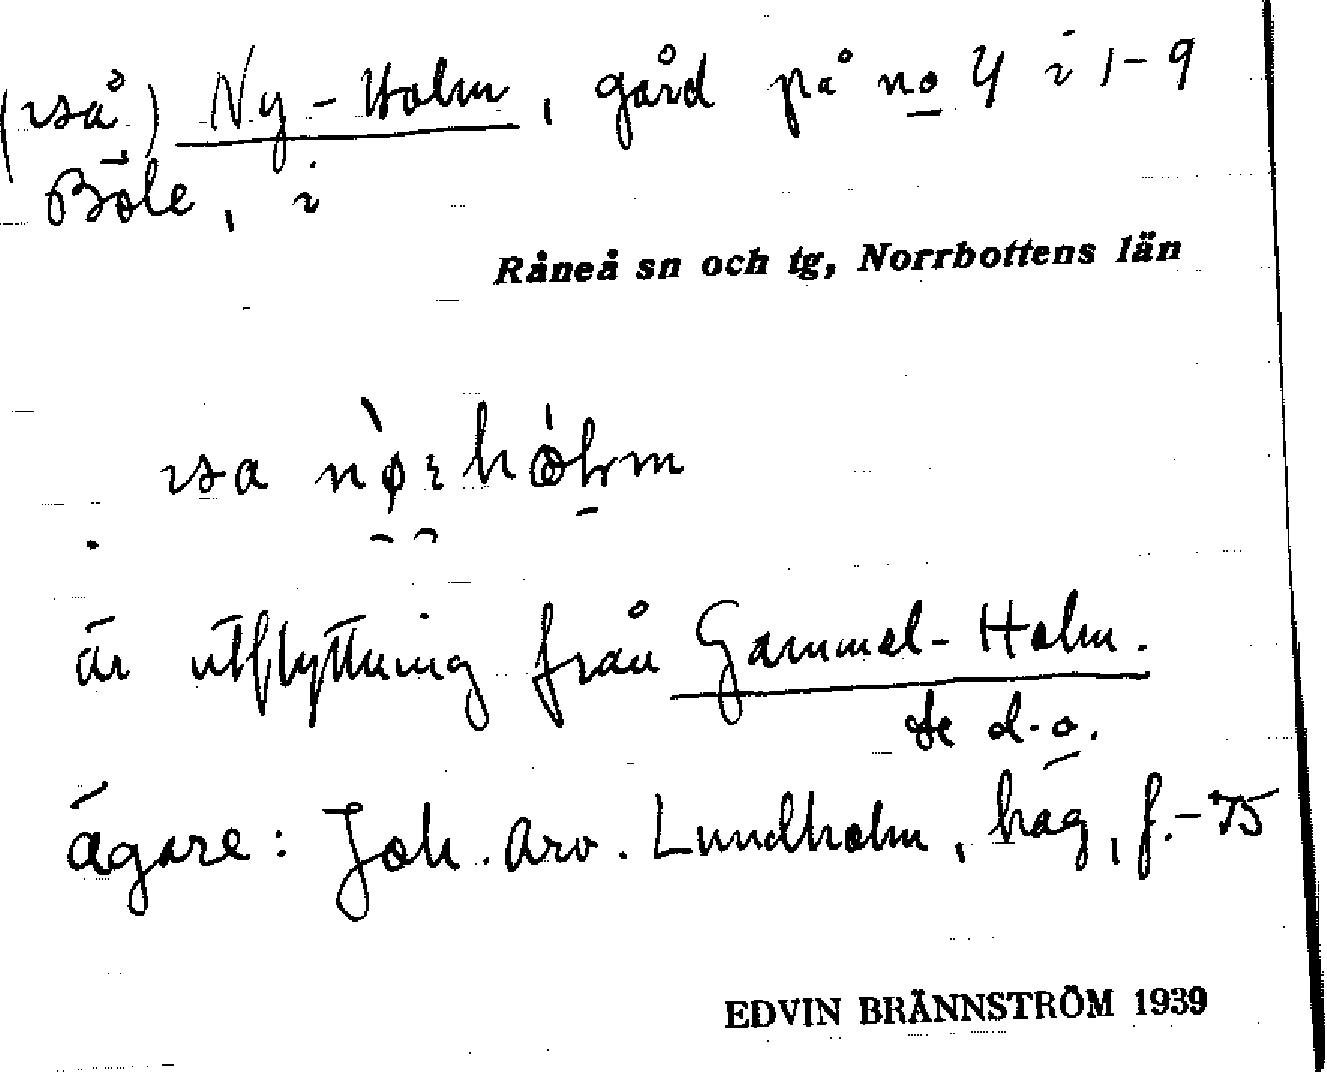 (iså) Ny-Holm, gård på no 4 i 1-9
Böle, i
Råneå sn och tg, Norrbottens län
är utflyttning från Gammel-Holm.
se d.o.
ägare: Joh. Arv. Lundholm, häg, f.-75
EDVIN BRÄNNSTRÖM 1939